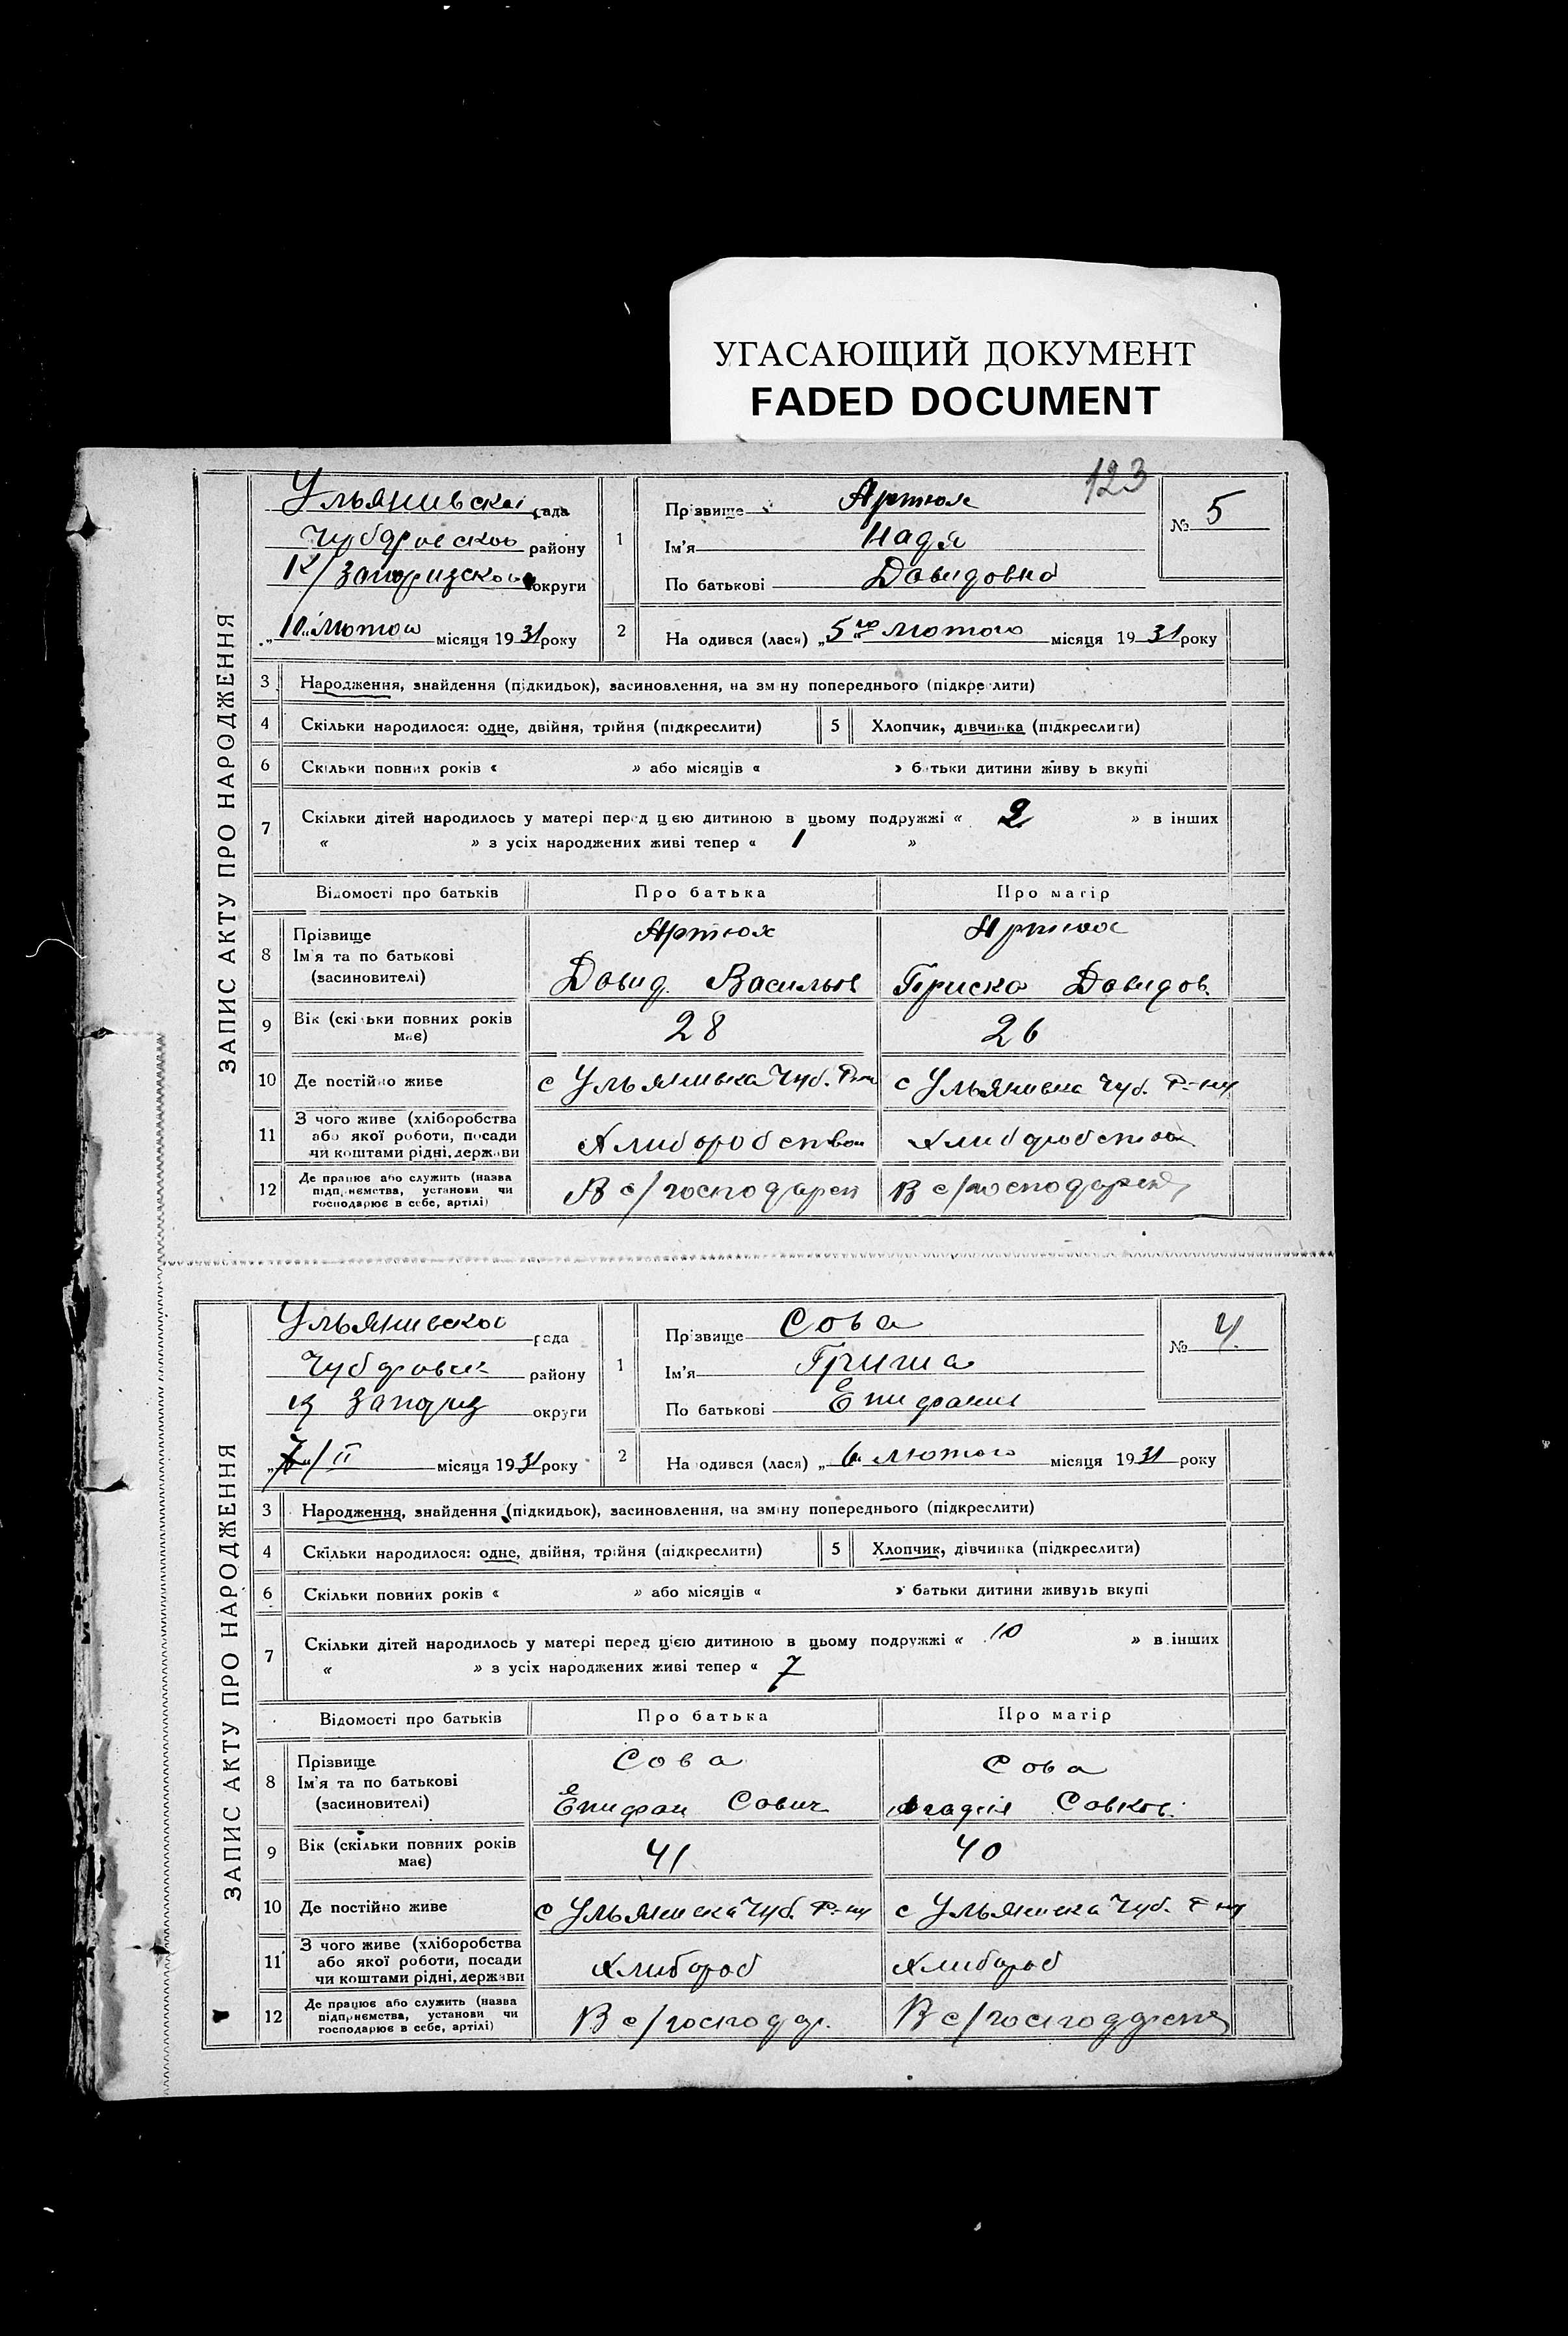 УГАСАЮЩИЙ ДОКУМЕНТ
FADED DOCUMENT
123
ЗАПИС АКТУ ПРО НАРОДЖЕННЯ
Ульянивскої рада
району
К/Запоризского округи
„10„ Лютого місяця 1931 року
1
Прізвище Артюх
Ім'я Надя
По батькові Давидовна
№ 5
2 На одився (лася) „5го Лютого місяця 1931 року
3 Народження, знайдення (підкидьок), засиновлення, на зміну попереднього (підкреслити)
4 Скільки народилося: одне, двійня, трійня (підкреслити)
5 Хлопчик, дівчинка (підкреслити)
6 Скільки повних років « » або місяців « » батьки дитини живу ь вкупі
7 Скільки дітей народилось у матері перед цією дитиною в цьому подружжі « 2 » в інших
« » з усіх народжених живі тепер « 1 »
Відомості про батьків Про батька Про матір
8 Прізвище
Ім'я та по батькові
(засиновителі)
Артюх
Давид Васильов
Артюх
Приска Давидов.
9 Вік (скільки повних років
має)
28 26
10 Де постійно живе с Ульянивка Чуб. Р-ну с Ульянивка Чуб. Р-ну
11 З чого живе (хліборобства
або якої роботи, посади
чи коштами рідні, держави
Хлиборобством Хлиборобством
12 Де працює або служить (назва
підприємства, установи чи
господарює в себе, артілі)
В с/господарсп В с/господарсп
ЗАПИС АКТУ ПРО НАРОДЖЕННЯ
Ульянивскої рада
району
Запориз округи
„7„/II місяця 1931 року
1
Прізвище Сова
Ім'я Гриша
По батькові Епифания
№ 4.
2 На одився (лася) „6„ лютого місяця 1931 року
3 Народження, знайдення (підкидьок), засиновлення, на зміну попереднього (підкреслити)
4 Скільки народилося: одне, двійня, трійня (підкреслити)
5 Хлопчик, дівчинка (підкреслити)
6 Скільки повних років « » або місяців « » батьки дитини живуть вкупі
7 Скільки дітей народилось у матері перед цією дитиною в цьому подружжі « 10 » в інших
« » з усіх народжених живі тепер « 7
Відомості про батьків Про батька Про матір
8 Прізвище
Ім'я та по батькові
(засиновителі)
Сова
Епифан Савич
Сова
Савков.
9 Вік (скільки повних років
має)
41 40
10 Де постійно живе с Ульянивка Чуб. Р-ну с Ульянивка Чуб. Р-ну
11 З чого живе (хліборобства
або якої роботи, посади
чи коштами рідні, держави
Хлибороб Хлибороб
12 Де працює або служить (назва
підприємства, установи чи
господарює в себе, артілі)
В с/господар. В с/господарсп